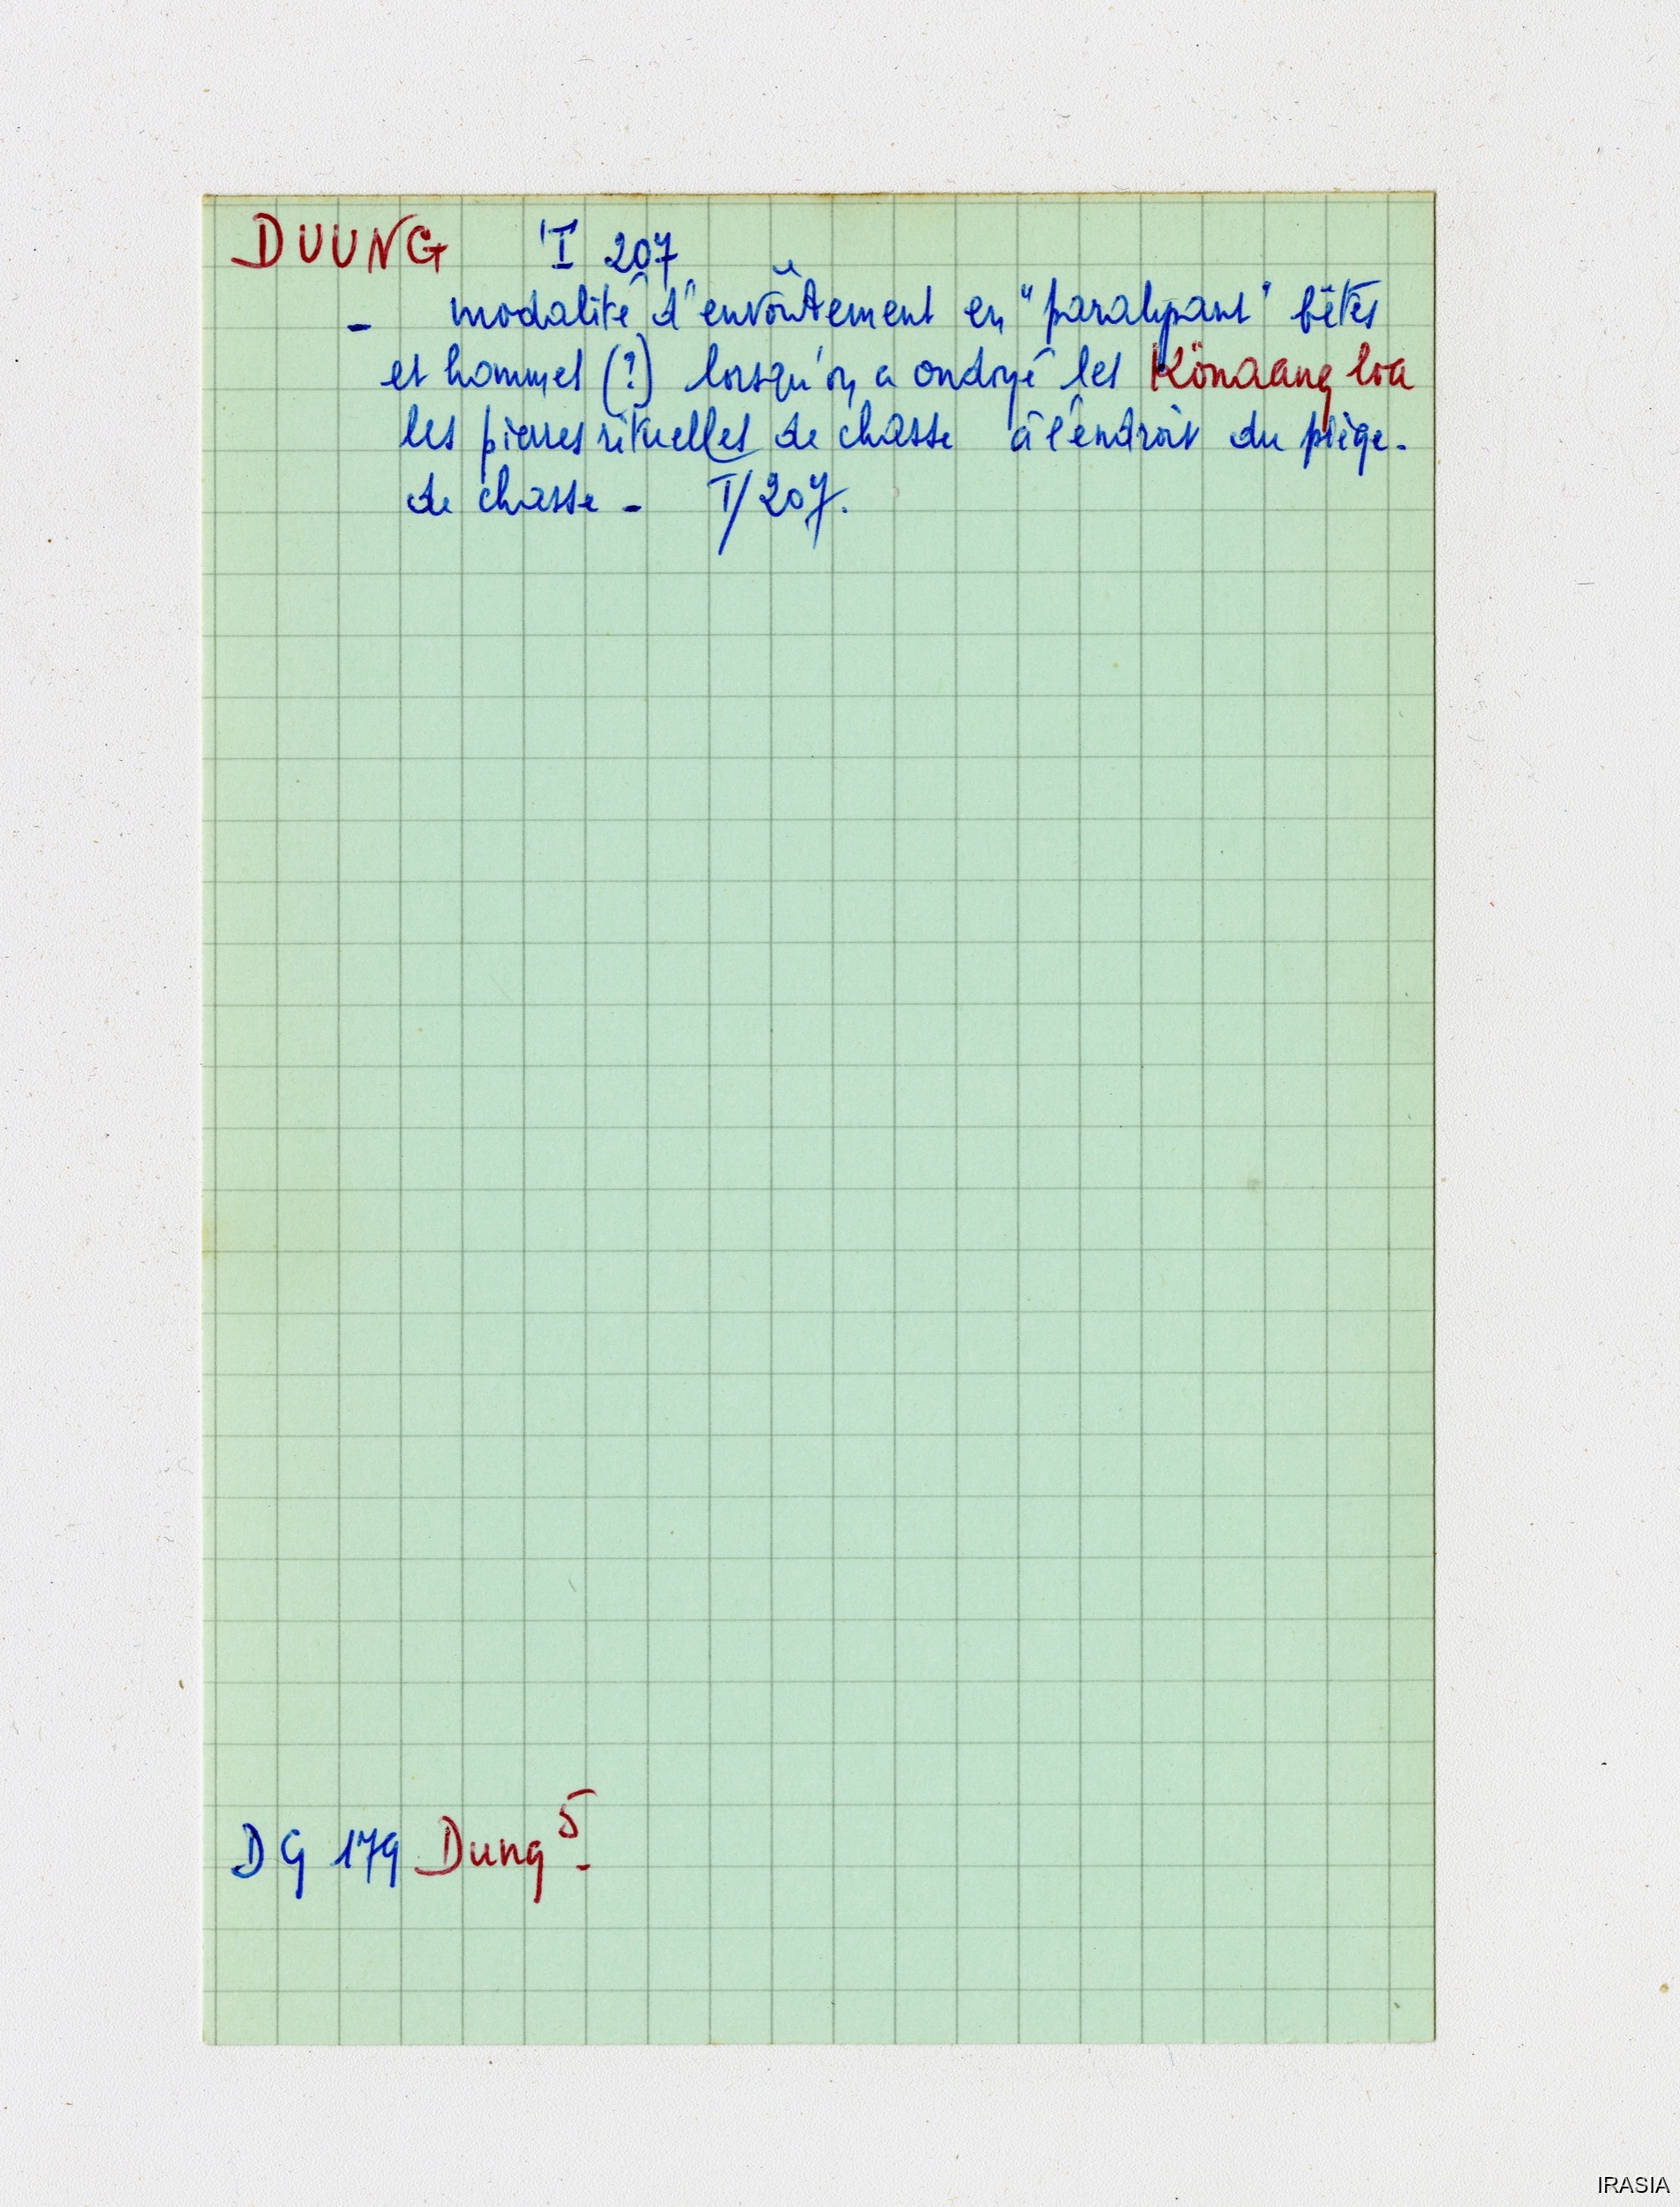 DUUNG 'I 207
- modalité d'envoûtement en "paralysant" bêtes
et hommes (?) lorsqu'on a ondoyé les Könaang loa
les pierres rituelles de chasse à l'endroit du piège.
de chasse - I/207.
DG 179 Dung 5.
IRASIA